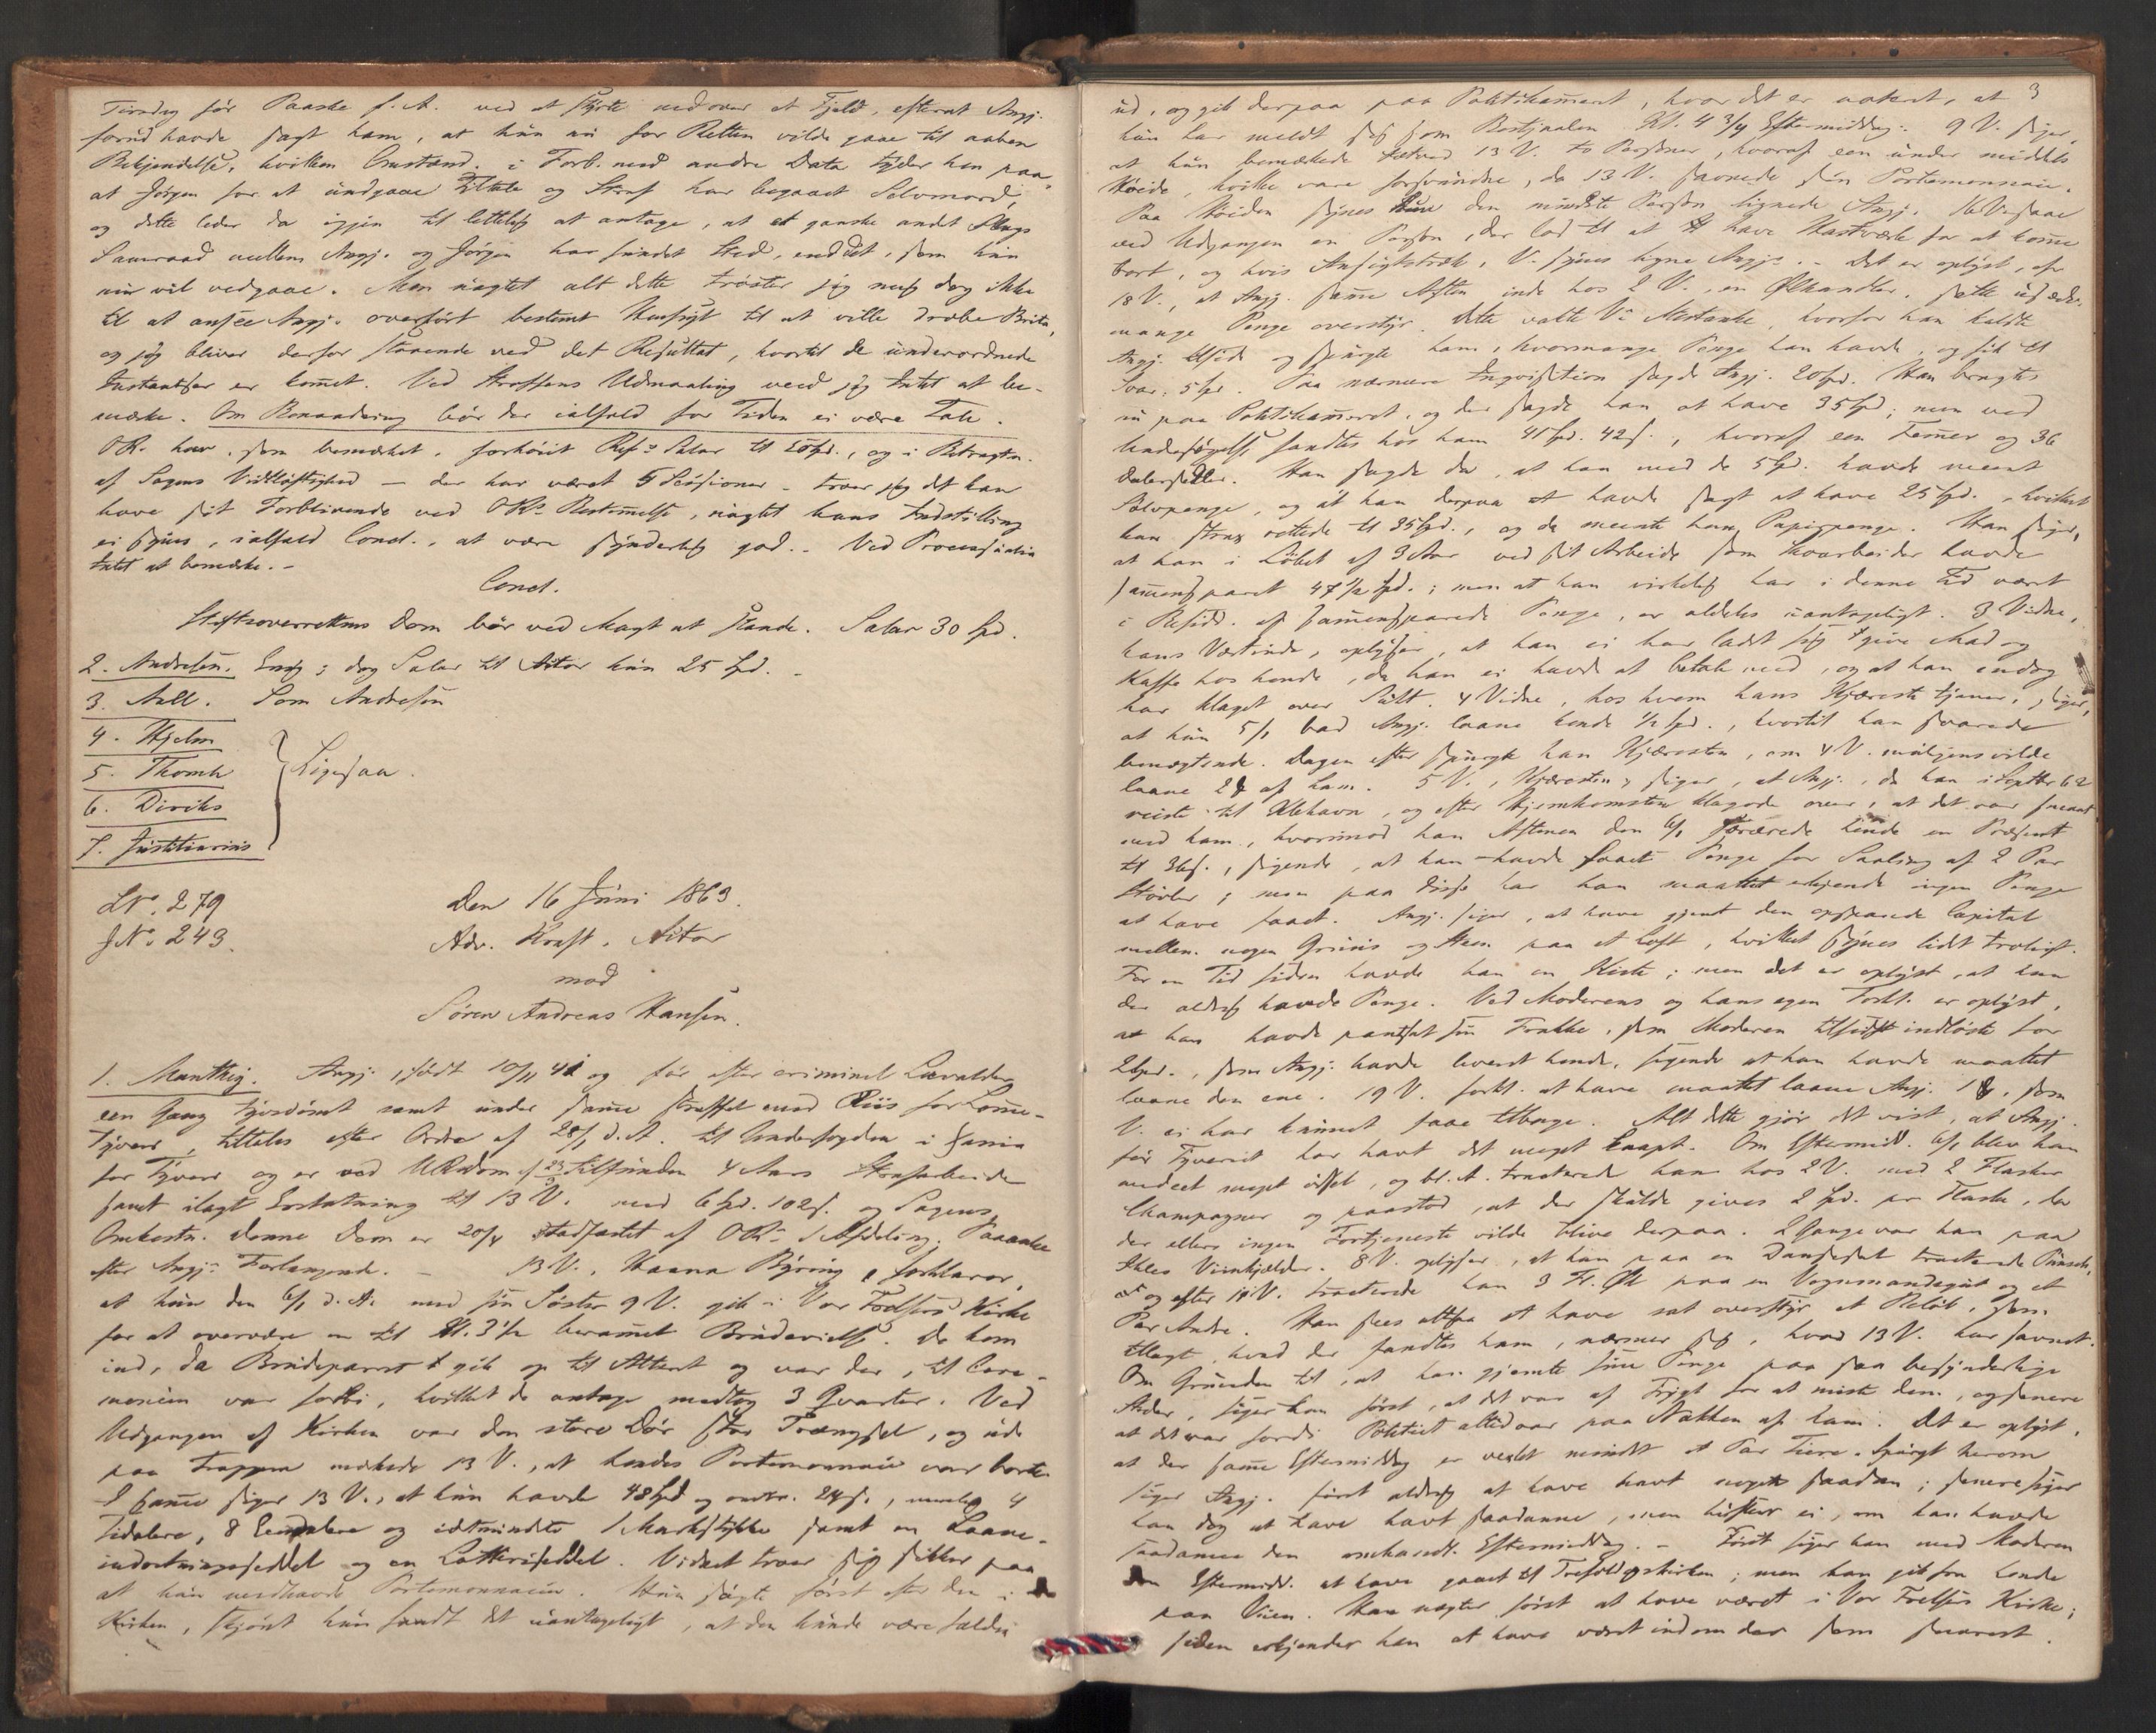 Tirsdag før Paaske f. A. ved at styrte ned over et Fjeld, efterat Angj.
forud havde sagt ham, at hun nu for Retten vilde gaae til aaben
Bekjendelse, hvilken Omstænd. i Forb. med andre Data tyder hen paa,
at Jørgen for at undgaae Tiltale og Straf har begaaet Selvmord,
og dette leder da igjen til lettelig at antage, at et ganske andet Slags
Samraad mellem Angj. og Jørgen har fundet Sted, end det, som hun
nu vil vedgaae. Men uagtet alt dette trøster jeg mig dog ikke
til at ansee Angj. overført bestemt Hensigt til at ville dræbe Brita,
og jeg bliver derfor staaende ved det Resultat, hvortil de underordnede
Instantser er kommet. Ved Straffens Udmaaling veed jeg Intet at be-
mærke. Om Benaadning bør der ialfald for Tiden ei være Tale.
OR. har, som bemærket, forhøiet Salar til 20 Spd., og i Betragtn.
af Sagens Vidtløftighed — der har været 5 Sessioner — troer jeg det kan
have sit Forblivende ved ORs Bestemmelse, uagtet hans Indstilling
ei synes, ialfald Concl., at være synderlig god. – Ved
Intet at bemærke. –
Concl.
Stiftsoverrettens Dom bør ved Magt at stande. Salar 30 Spd.
2. Andresen. Enig; dog Salar til Aktor kun 25 Spd. –
3. Aall. Som Andresen
4. Hjelm
5. Thomle
Ligesaa.
6. Diriks
7. Justitiarius
LNo. 279
Den 16 Juni 1863.
JNo. 243.
Adv. Kraft, Aktor
mod
Søren Andreas Hansen.
1. Manthey. Angj., født 10/11 41 og før efter criminel Lavalder
een Gang tyvsdømt samt under samme straffet med Riis for Lomme-
Tyveri, tiltales efter Ordre af 28/1 d. A. til Undersøgden i Xania
for Tyveri og er ved URdom af 23/3 tilfunden 4 Aars Strafarbeide
samt ilagt Erstatning til 13 V. med 6 Spd. 102 s. og Sagens
Omkostn. Denne Dom er 20/4 stadfæstet af ORs 1 Afdeling. Paaanke
efter Angj.s Forlangende. – 13 V., Haana Byring, forklarer,
at hun den 6/1 d. A. med sin Søster 9 V. gik i Vor Frelsers Kirke
for at overvære en til Kl. 3 1/2 berammet Brudevielse. De kom
ind, da Brudeparret gik op til Alteret og var der, til Cere-
monien var forbi, hvilket de antage medtog 3 Qvarter. Ved
Udgangen af Kirken var den store Dør stor Trængsel, og ude
paa Trappen mærkede 13 V., at hendes Portemonnaie var borte.
I samme siger 13 V., at hun havde 48 Spd og omtr. 24 s., nemlig 4
Tidalere, 8 Eendalere og idetmindste 1 Markstykke samt en Laane-
indretningsseddel og en Lotteriseddel. Vidnet troer sig sikker paa
at hun medhavde Portemonnaien. Hun søgte først efter den i
Kirken, skjønt hun fandt det uantageligt, at den kunde være falden
3
ud, og gik derpaa paa Politikammeret, hvor det er noteret, at
hun har meldt sig som Bestjaalen Kl. 4 3/4 Eftermiddag. 9 V. siger,
at hun bemærkede tætved 13 V. to Personer, hvoraf een under middels
Høide, hvilke vare forsvundne, da 13 V. savnede sin Portemonnaie.
Paa Høiden synes den mindste Person lignede Angj. 16 V. saae
ved Udgangen en Person, der lod til at have Hastværk for at komme
bort, og hvis Ansigtstræk, V. synes ligne Angj.s – Det er oplyst, af
18 V., at Angj. samme Aften inde hos 2 V., en Ølhandler, satte usædv.
mange Penge overstyr. Dette vakte V.s Mistanke, hvorfor han kaldte
Angj. tilside og spurgte ham, hvormange Penge han havde, og fik til
Svar: 5 Spd. Paa nærmere Inqvisition sagde Angj. 20 Spd. Han bragtes
nu paa Politikammeret, og der sagde han at have 35 Spd; men ved
Undersøgelse fandtes hos ham 41 Spd. 42 s., hvoraf een Femmer og 36
Dalersedler. Han sagde da, at han med de 5 Spd. havde meent
Sølvpenge, og at han derpaa havde sagt at have 25 Spd., hvilket
han strax rettede til 35 Spd., og da meente han Papirpenge. Han siger,
at han i Løbet af 3 Aar ved sit Arbeide som havde
sammensparet 47 1/2 Spd.; men at han virkelig har i denne Tid været
i Besidd. af sammensparede Penge, er aldeles uantageligt. 3 Vidne,
hans Værtinde, oplyser, at han ei har ladet sig give Mad og
Kaffe hos hende, da han ei havde at betale med, og at han endog
har klaget over Sult. 4 Vidne, hos hvem hans Kjæreste tjener, siger,
at hun 5/1 bad Angj. laane hende 1/2 Spd., hvortil han svarede
benægtende. Dagen efter spurgte han Kjæresten, om 4 V. muligens vilde
laane 2 af ham. 5 V., Kjæresten, siger, at Angj., da han i Septbr 62
reiste til Khavn, og efter Hjemkomsten klagede over, at det var smaat
med ham, hvorimod han Aftenen den 6/1 forærede hende en Præsent
til 36 s., sigende, at han havde faaet Penge for Saaling af 2 Par
Støvler; men paa disse har han maattet erkjende ingen Penge
at have faaet. Angj. siger, at have gjemt den opsparede Capital
mellem nogen Gruus og Steen paa et Loft, hvilket synes lidt troligt.
For en Tid siden havde han en Kiste; men det er oplyst, at han
der aldrig havde Penge. Ved Moderens og hans egen Forkl. er oplyst,
at han havde pantsat sin Frakke, som Moderen tilsidst indløste for
2 Spd., som Angj. havde leveret hende, sigende at han havde maattet
laane den ene. 19 V. forkl. at have maattet laane Angj. 1, som
V. ei har kunnet faae tilbage. Alt dette gjør det vist, at Angj.
før Tyveriet har havt det meget knapt. Om Eftermidd. 6/1 blev han
meget ødsel, og bl. A. tracterede han hos 2 V. med 2 Flasker
Champagner og paastod, at der skulde gives 2 Spd. pr Flaske, da
der ellers ingen Fortjeneste vilde blive derpaa. 2 Gange var han paa
Viinkjælder. 8 V. oplyser, at han paa en Dansesal tracterede Punsch,
og efter 11 V. tracterede han 3 Fl. Øl paa en Vognmandsgut og et
Par Andre. Han sees altsaa at have sat overstyr et Beløb, som
tillagt, hvad der fandtes ham, nærmer sig, hvad 13 V. har savnet.
Om Grunden til, at han gjemte sine Penge paa saa besynderlige
Steder, siger han først, at det var af Frygt for at miste dem, og senere
at det var fordi Politiet altid var paa Nakken af ham. Det er oplyst,
at der samme Eftermiddag er vexlet mindst et Par Tiere. Spurgt herom
siger Angj. først aldrig at have havt nogen saadan; senere siger
han dog at have havt saadanne, men husker ei, om han havde
saadanne den omhandl. Eftermiddag. – Først siger han med Moderen
den Eftermidd. at have gaaet til Trefoldigskirken; men han gik fra hende
paa Veien. Han nægter først at have været i Vor Frelsers Kirke;
siden erkjender han at have været indom der som snarest.